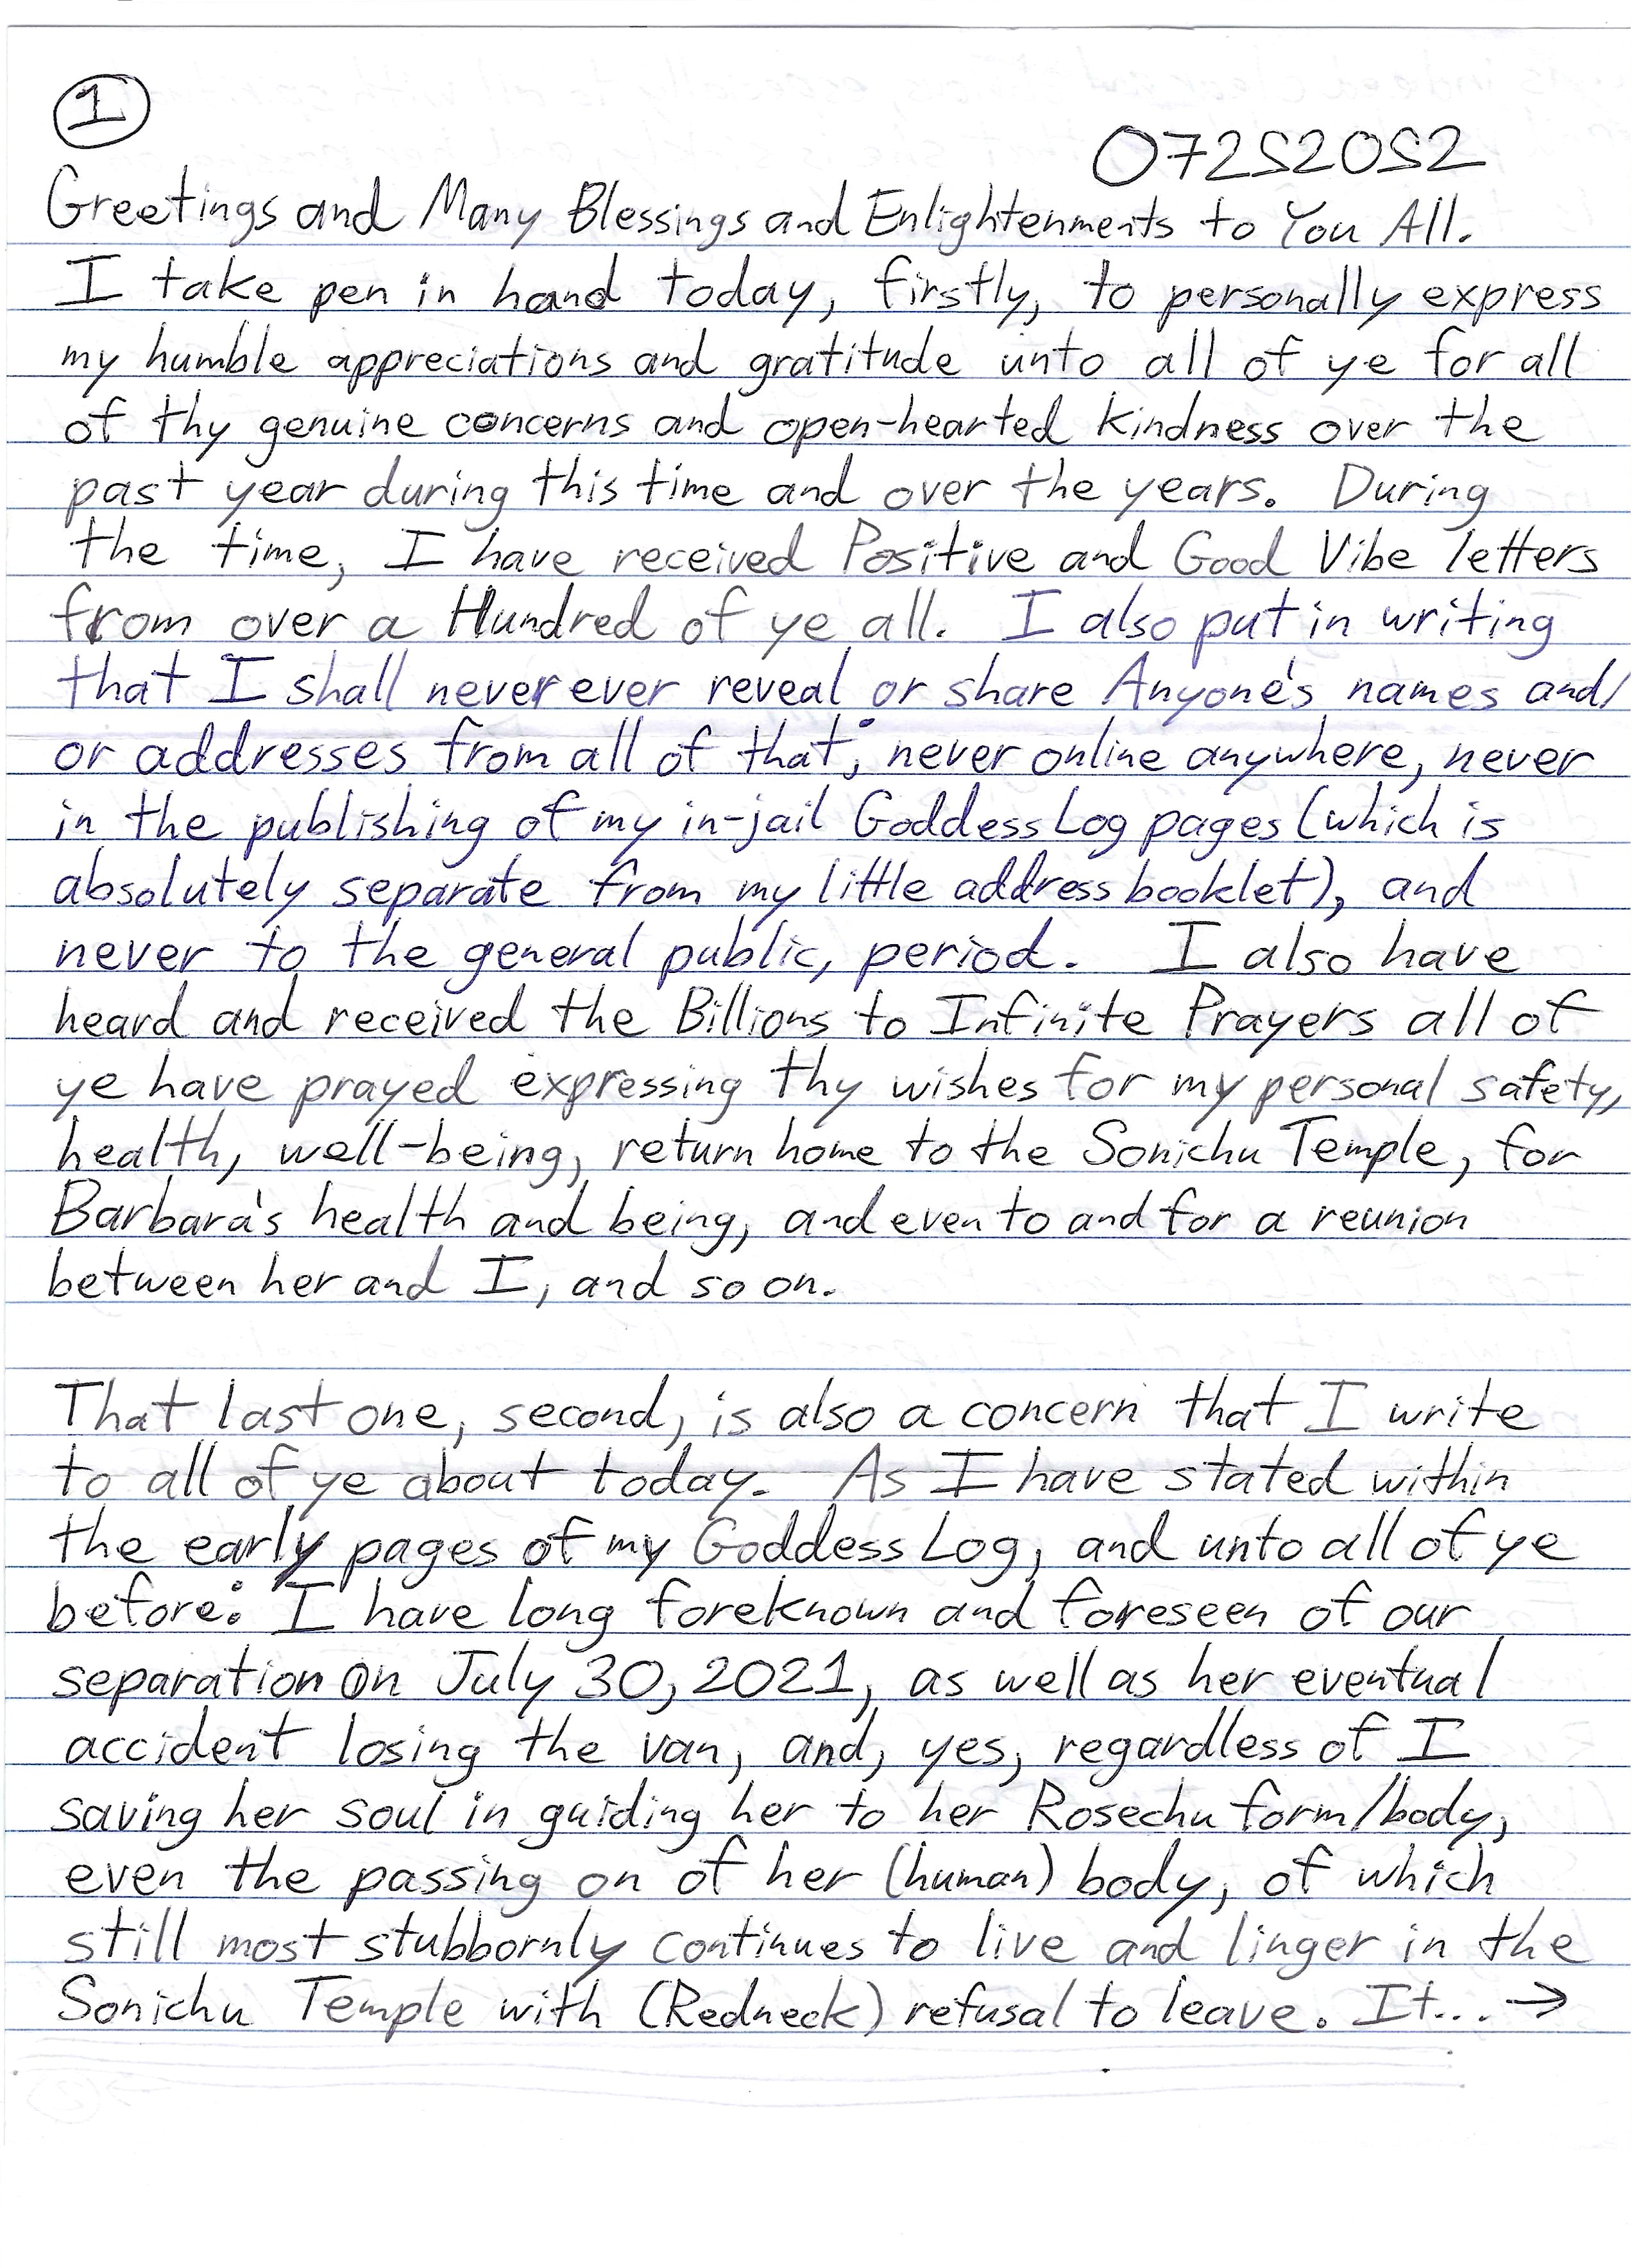 1
072S20S2
Greetings and Many Blessings and Enlightenments to You All.
I take pen in hand today, firstly, to personally express
my humble appreciations and gratitude unto all of ye for all
of thy genuine concerns and open-hearted kindness over the
past year during this time and over the years. During
the time, I have received Positive and Good Vibe letters
from over a Hundred of ye all. I also put in writing
that I shall never ever reveal or share Anyone's names and/
or addresses from all of that; never online anywhere, never
in the publishing of my in-jail Goddess Log pages (which is
absolutely separate from my little address booklet), and
never to the general public, period. I also have
heard and received the Billions to Infinite Prayers all of
ye have prayed expressing thy wishes for my personal safety,
health, well-being, return home to the Sonichu Temple, for
Barbara's health and being, and even to and for a reunion
between her and I, and so on.
That last one, second, is also a concern that I write
to all of ye about today. As I have stated within
the early pages of my Goddess Log, and unto all of ye
before: I have long foreknown and foreseen of our
separation on July 30, 2021, as well as her eventual
accident losing the van, and, yes, regardless of I
saving her soul in guiding her to her Rosechu form/body,
even the passing on of her (human) body, of which
still most stubbornly continues to live and linger in the
Sonichu Temple with (Redneck) refusal to leave. It... →